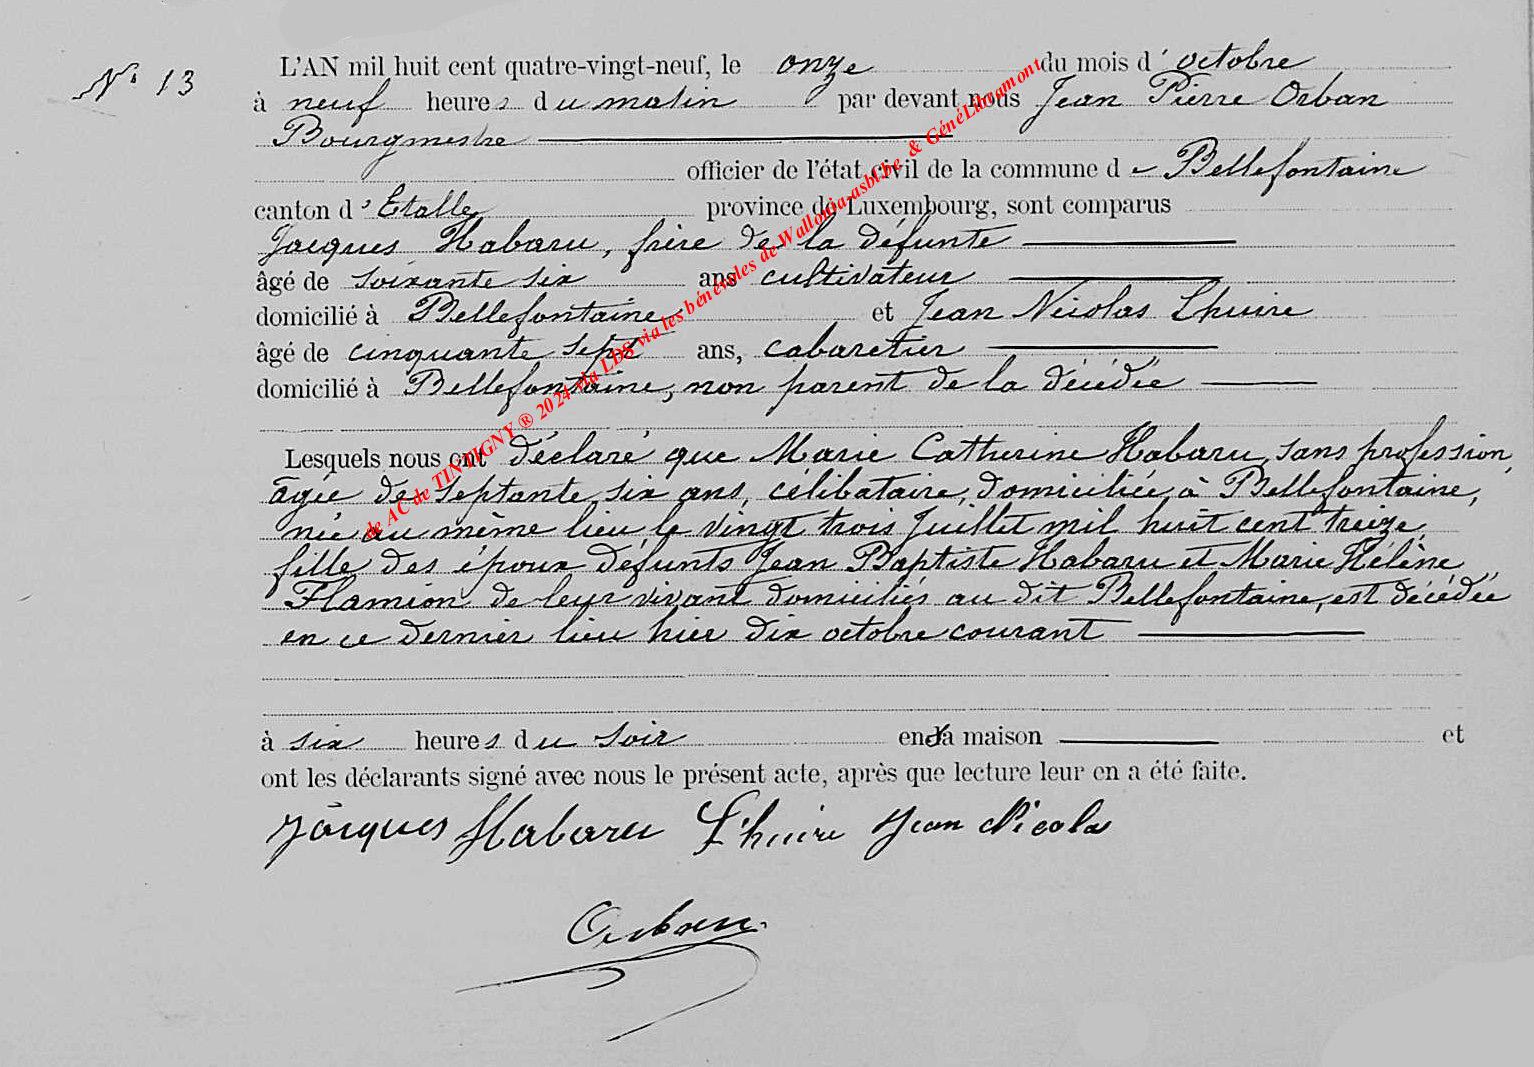 N° 13
L'AN mil huit cent quatre-vingt-neuf, le onze du mois d'octobre
à neuf heures du matin par devant nous Jean Pierre Orban
Bourgmestre
officier de l'état civil de la commune de Bellefontaine
canton d'Etalle province de Luxembourg, sont comparus
Jacques Habaru, frère de la défunte
âgé de soixante six ans cultivateur
domicilié à Bellefontaine et Jean Nicolas Lhuire
âgé de cinquante sept ans, cabaretier
domicilié à Bellefontaine, non parent de la décédée
Lesquels nous ont déclaré que Marie Catherine Habaru, sans profession,
âgée de septante six ans, célibataire, domiciliée à Bellefontaine,
née au même lieu le vingt trois Juillet mil huit cent treize,
fille des époux défunts Jean Baptiste Habaru et Marie Hélène
Flamion de leur vivant domiciliés au dit Bellefontaine, est décédée
en ce dernier lieu hier dix octobre courant
à six heures du soir en sa maison et
ont les déclarants signé avec nous le présent acte, après que lecture leur en a été faite.
Jacques Habaru L'huire Jean Nicolas
Orban
de AC de TINTIGNY ® 2024 via LDS via les bénévoles de Wallonia-asbl.be & GénéLibramont